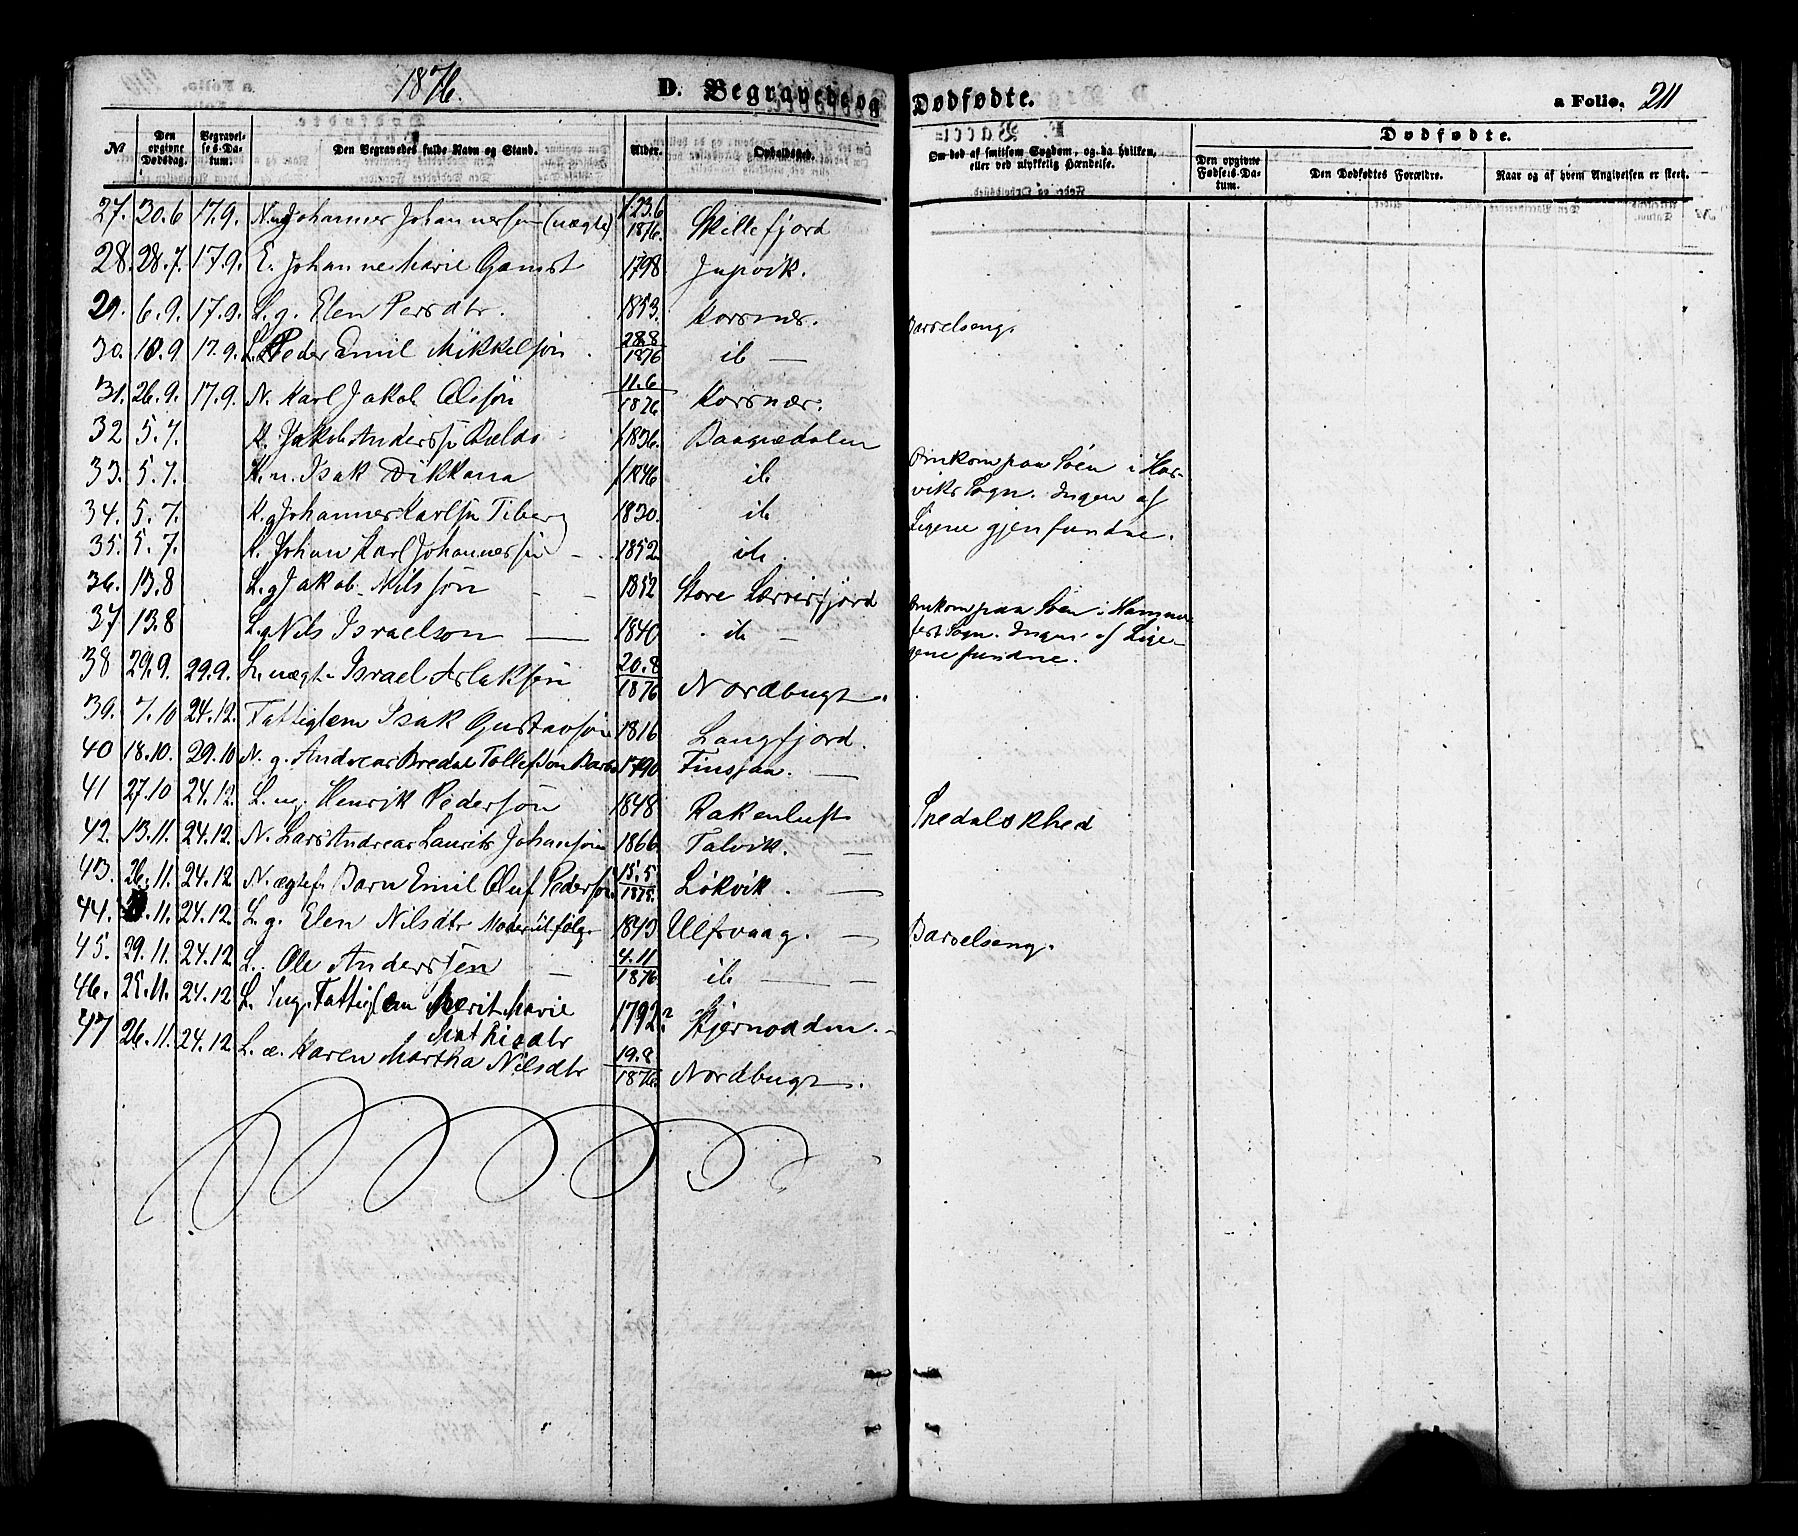 1876.
D. Begravede og Dødfødte.
a Folio. 211
No
Den opgivne Dødsdag.
Begravelses-Datum.
Den Begravedes fulde Navn og Stand.
Alder.
Opholdssted.
Om død af smitsom Sygdom, og da hvilken, eller ved ulykkelig Hændelse.
Dødfødte.
Den opgivne Fødsels-Datum.
Den Dødfødtes Forældre.
Naar og af hvem Angivelsen er skeet.
27. 30.6 17.9. Johannes Johannessøn (uægte) f. 23.6 1876. Skillefjord
28. 28.7. 17.9. E. Johanne Marie Gamst 1798 Jupvik.
29. 6.9. 17.9. L.g. Elen Persdtr. 1853. Korsnæs. Barselseng.
30. 10.9 17.9. Peder Emil Mikkelsøn 28.8 1876 ib
31. 26.9. 17.9. N. Karl Jakob Olssøn 11.6 1876 Korsnæs.
32 5.7. K. Jakob Anderss. f 1836.
33. 5.7. K.u. Isak Dikkana f 1846 ib Omkom paa Søen i
34. 5.7. K.g. Johannes Karlsn Tiberg 1830. ib Sogn. Ingen af
35. 5.7. K. Johan Karl Johannessn 1852 ib. Ligene gjenfundne.
36. 13.8 L.g. Jakob Nilssøn 1852 Store
37 13.8 L.g. Nils Israelson 1840 ib Omkom paa Søen i Hammerfest Sogn. Ingen af Ligene fundne.
38 29.9. 29.9. L. uægt. Israel Aslaksøn 20.8 1876 Nordbugt.
39. 7.10 24.12. Fattiglem Isak Gustavsøn 1816 Langfjord.
40 18.10. 29.10 N. g. Andreas Bredal Tollefson 1790
41 27.10 24.12. L. ug. Henrik Pedersøn 1848 Rakenluft Spedalskhed
42. 13.11. 24.12. N. Lars Andreas Laurits Johansøn 1866 Talvik.
43. 26.11. 24.12 N. ægtef. Barn Emil Oluf Pedersøn 15.5 1875. Løkvik.
44. 11. 24.12. L.g. Elen Nilsdtr 1843 Ulfsvaag. Barselseng.
45. 29.11. 24.12 L. Ole Anderssen 4.11 1876 ib
46. 25.11. 24.12 L. Fattiglem Berit Marie Mathisdtr 1792?
47 26.11. 24.12. L. æ. Karen Martha Nilsdtr 19.8 1876. Nordbugt.